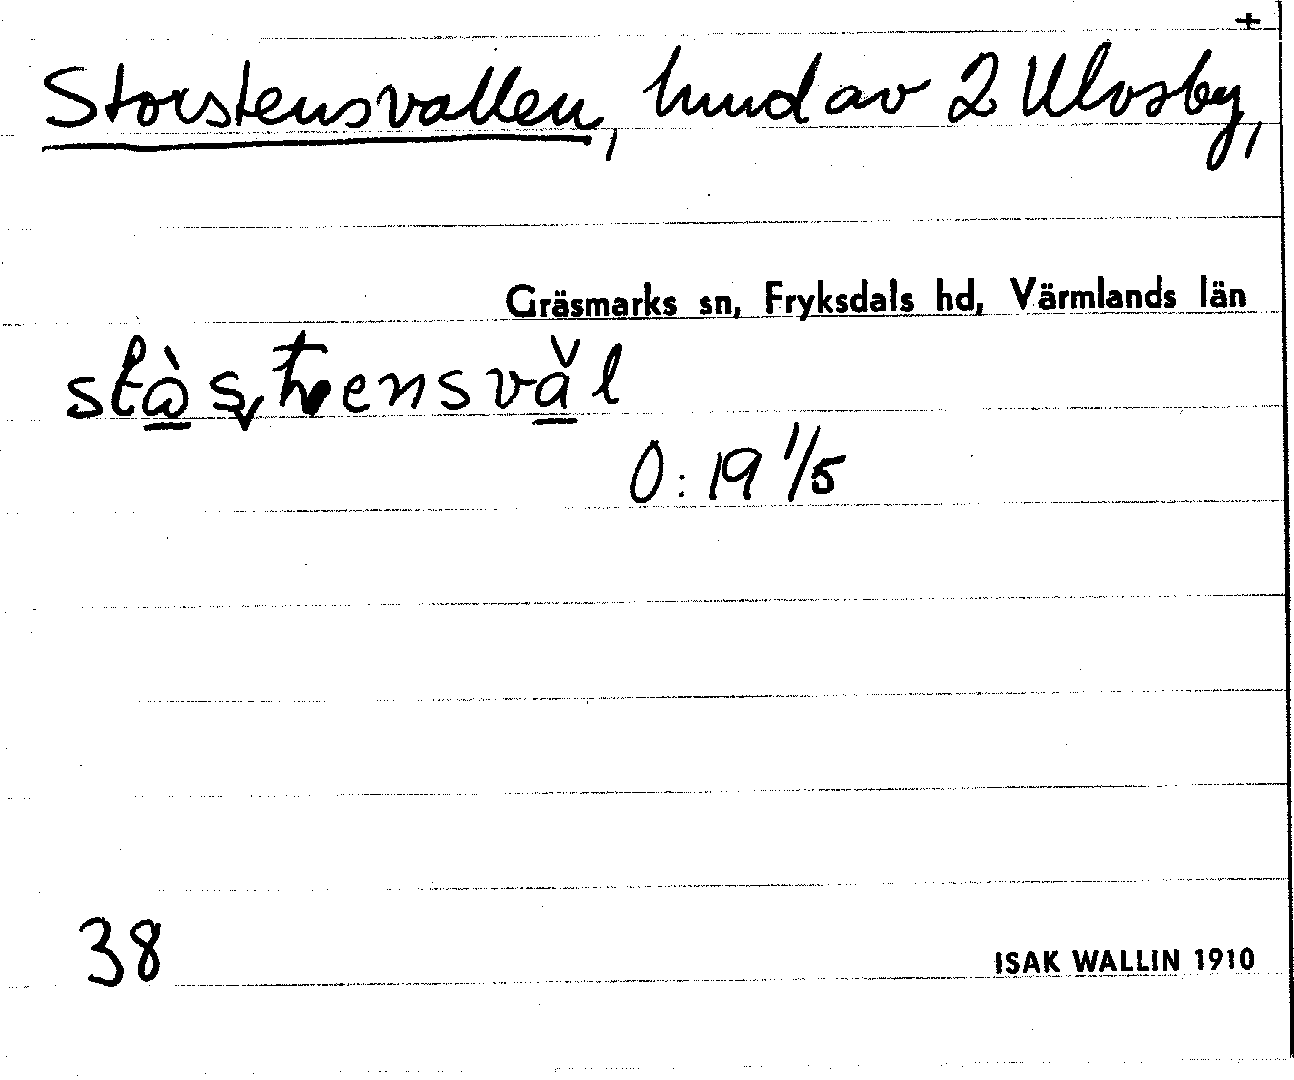 +
Storstensvallen, hmd av 2 Ulvsby,
Gräsmarks sn, Fryksdals hd, Värmlands län
O: 19 1/5
38
ISAK WALLIN 1910